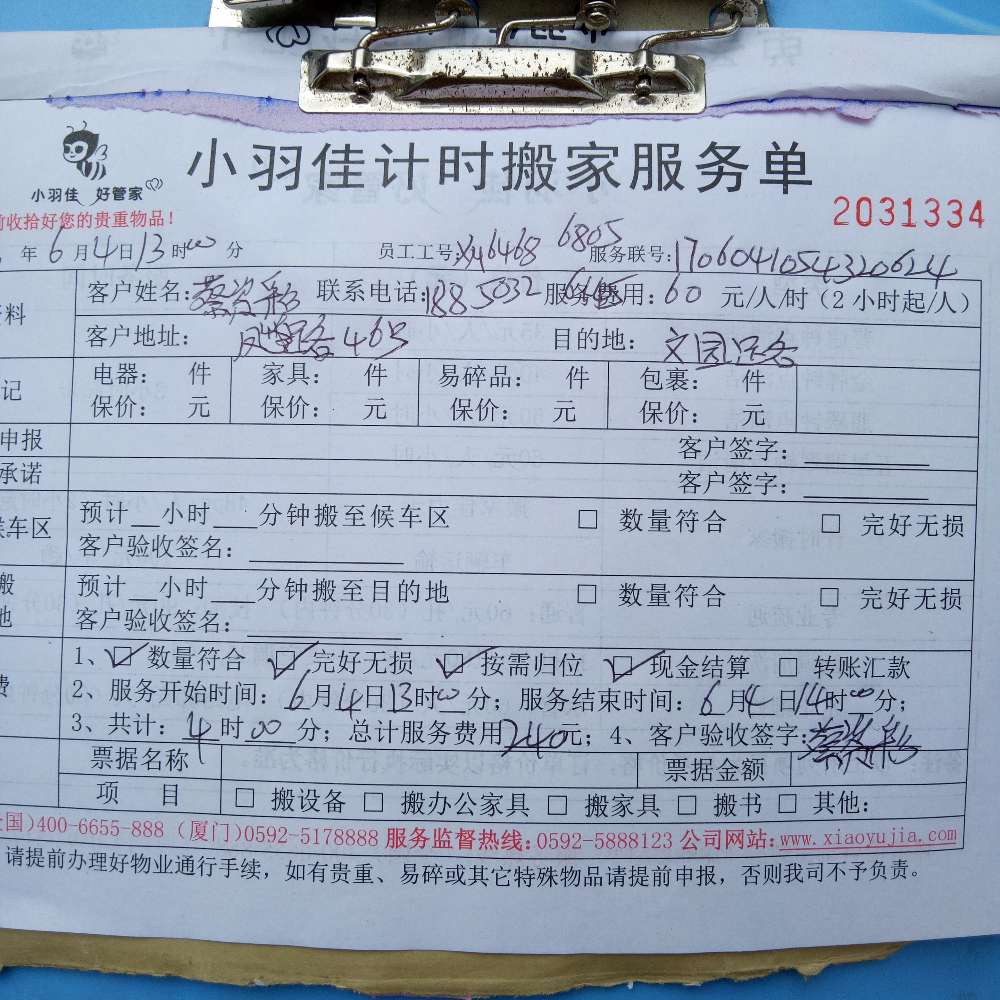 小羽佳 好管家
小羽佳计时搬家服务单
前收拾好您的贵重物品!
2031334
年6月4日13时00分 员工工号: 6468 6805 服务联号:1706041054320624
客户姓名: 联系电话:1885032 服务费用:60元/人/时(2小时起/人)
资料
客户地址: 46号 目的地:文园路
记
电器: 件 家具: 件 易碎品: 件 包裹: 件
保价: 元 保价: 元 保价: 元 保价: 元
申报 客户签字:
承诺 客户签字:
候车区
预计__小时___分钟搬至候车区 □ 数量符合 □ 完好无损
客户验收签名:
搬
地
预计__小时___分钟搬至目的地 □ 数量符合 □ 完好无损
客户验收签名:
费
1、☑ 数量符合 ☑ 完好无损 ☑ 按需归位 ☑ 现金结算 □ 转账汇款
2、服务开始时间:6月4日13时00分;服务结束时间:6月4日14时00分;
3、共计:4时00分;总计服务费用240元;4、客户验收签字:
票据名称 票据金额
项 目 □ 搬设备 □ 搬办公家具 □ 搬家具 □ 搬书 □ 其他:
全国)400-6655-888(厦门)0592-5178888 服务监督热线:0592-5888123 公司网站:www.xiaoyujia.com
请提前办理好物业通行手续,如有贵重、易碎或其它特殊物品请提前申报,否则我司不予负责。